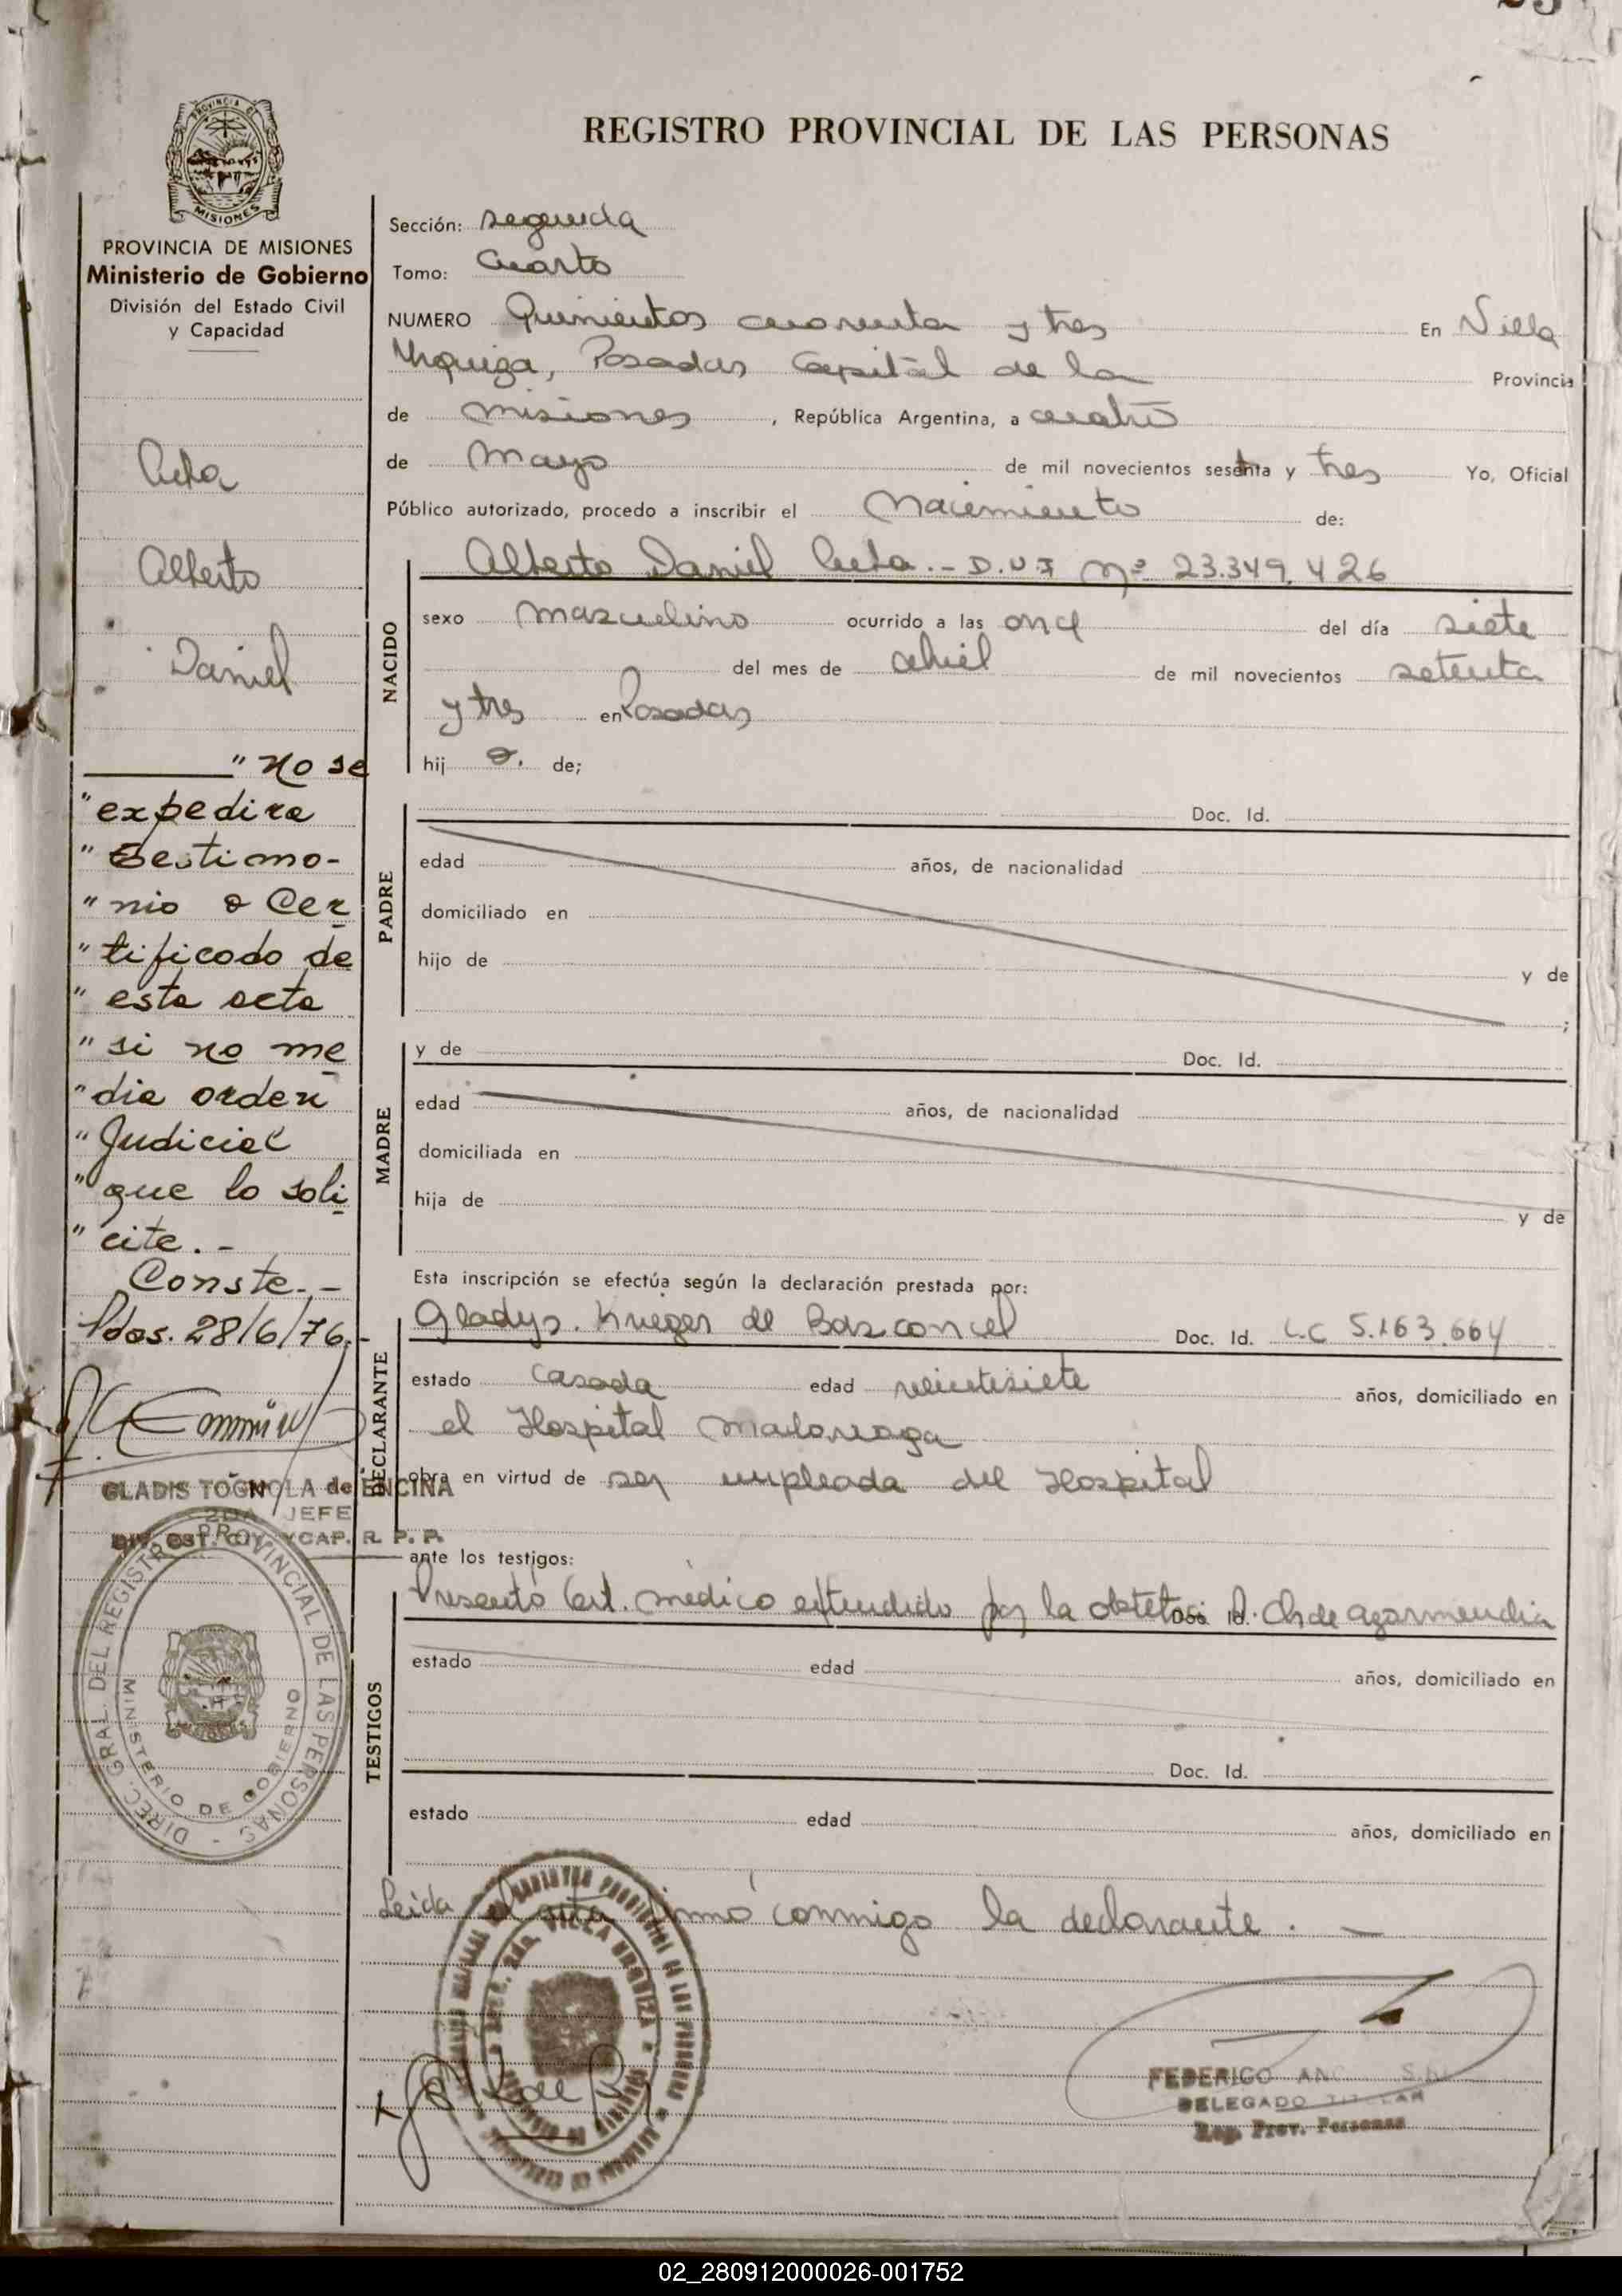 REGISTRO PROVINCIAL DE LAS PERSONAS
PROVINCIA DE
MISIONES
PROVINCIA DE MISIONES
Ministerio de Gobierno
División del Estado Civil
y Capacidad
Alberto
Daniel
" No se
" expedira
" Testimo-
" nio o Cer
" tificado de
" esta acta
" si no me
" dia orden
" Judicial
" que lo soli
" cite.-
Conste.-
Pdas. 28/6/76.-
GLADIS TOGNOLA de ENCINA
2DA JEFE
DIV. EST. CIV. Y CAP. R. P. P.
DIREC. GRAL. DEL REGISTRO PROVINCIAL DE LAS PERSONAS -
MINISTERIO DE GOBIERNO
Sección: segunda
Tomo: Cuarto
NUMERO Quinientos cuarenta y tres En Villa
Urquiza, Posadas Capital de la Provincia
de misiones, República Argentina, a cuatro
de Mayo de mil novecientos sesenta y tres Yo, Oficial
Público autorizado, procedo a inscribir el Nacimiento de:
NACIDO
Alberto Daniel .- D.U.I Nº 23.349.426
sexo masculino ocurrido a las once del día siete
del mes de abril de mil novecientos setenta
y tres en Posadas
hij o. de;
PADRE
Doc. Id.
edad años, de nacionalidad
domiciliado en
hijo de y de
;
MADRE
y de Doc. Id.
edad años, de nacionalidad
domiciliada en
hija de y de
Esta inscripción se efectúa según la declaración prestada por:
DECLARANTE
Gladys. Krieger de Basconcel Doc. Id. L.C 5.163.664
estado casada edad veintisiete años, domiciliado en
el Hospital Madariaga
obra en virtud de ser empleada del Hospital
ante los testigos:
TESTIGOS
Presentó Cert. médico extendido por la obstetra de Azarmendia
estado edad años, domiciliado en
Doc. Id.
estado edad años, domiciliado en
Leida el acta firmó conmigo la declarante. -
VILLA URQUIZA
FEDERICO
DELEGADO TITULAR
Reg. Prov. Personas
02_280912000026-001752